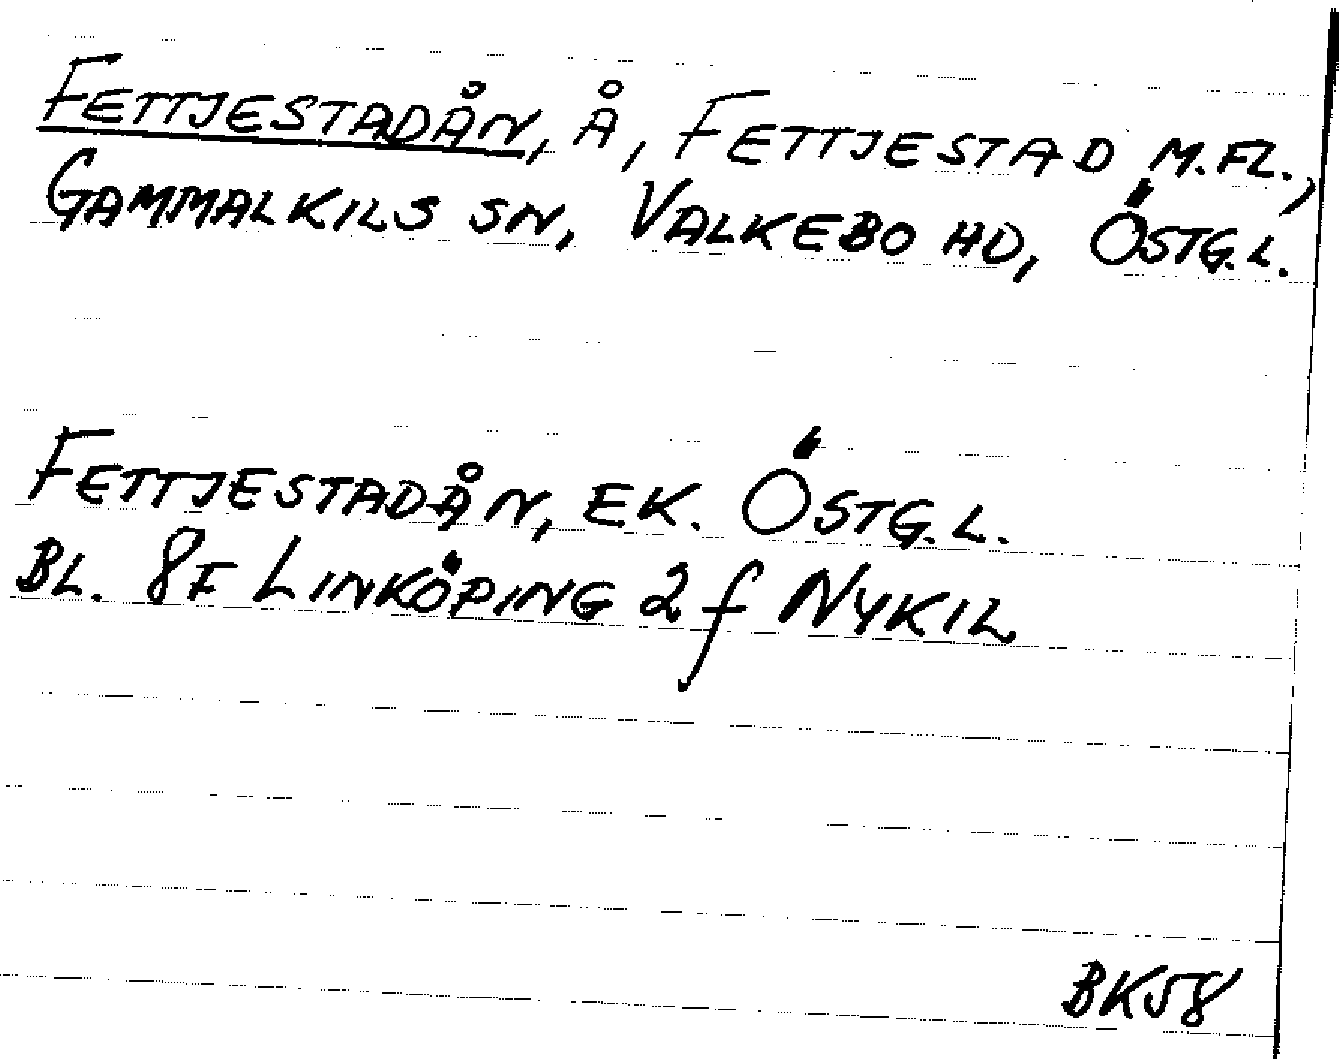 FETTJESTADÅN, Å, FETTJESTAD M.FL.,
GAMMALKILS SN, VALKEBO HD, ÖSTG.L.
FETTJESTADÅN, EK. ÖSTG.L.
BL. 8F LINKÖPING 2f NYKIL
BK58